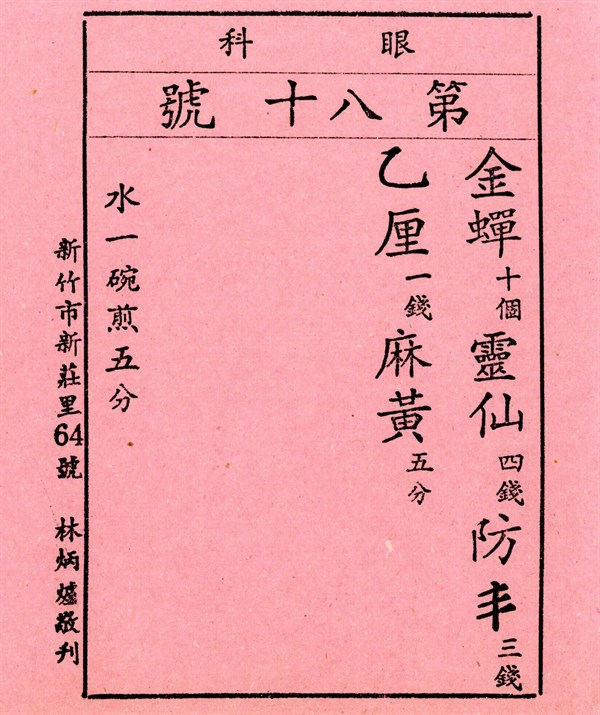 眼科
第八十號
金蟬十個靈仙四錢防丰三錢
乙厘一錢麻黃五分
水一碗煎五分
新竹市新莊里64號 林炳爐敬刊